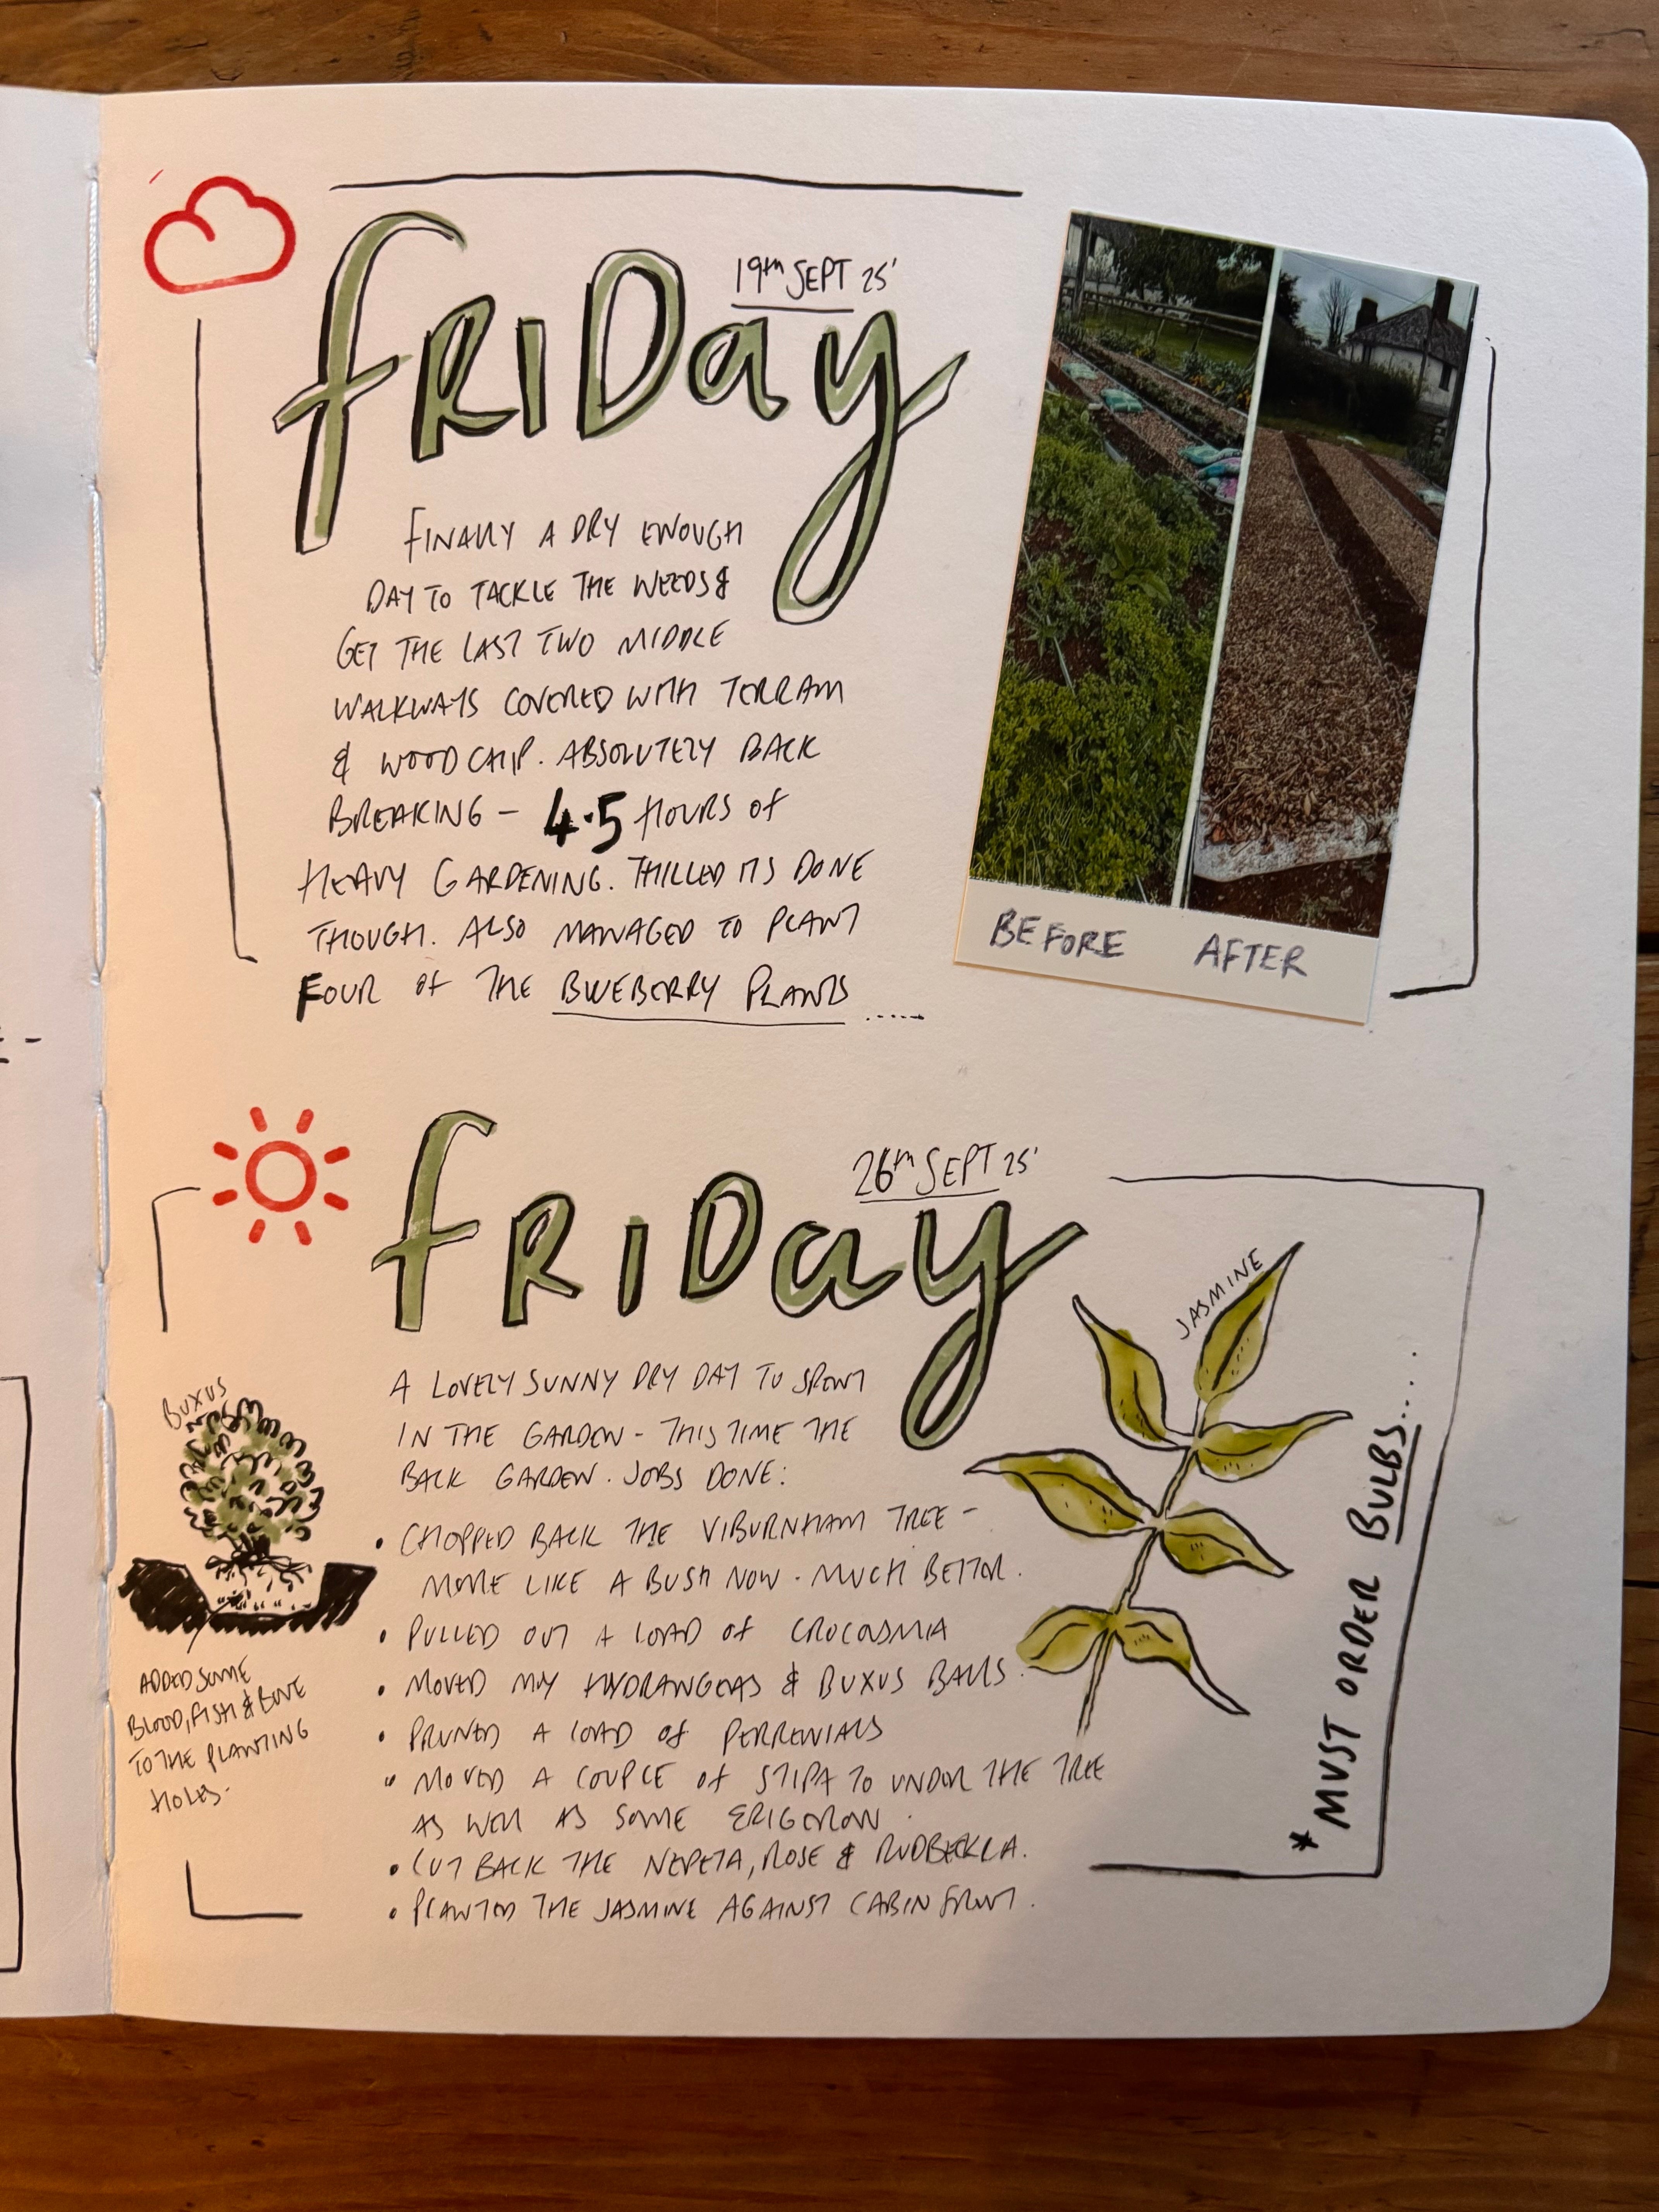 FRIDAY
19TH SEPT 25'
FINALLY A DRY ENOUGH
DAY TO TACKLE THE WEEDS &
GET THE LAST TWO MIDDLE
WALKWAYS COVERED WITH TERRAM
& WOODCHIP. ABSOLUTELY BACK
BREAKING - 4.5 HOURS OF
HEAVY GARDENING. THILLED ITS DONE
THOUGH. ALSO MANAGED TO PLANT
FOUR OF THE BLUEBERRY PLANTS .....
BEFORE AFTER
FRIDAY
26TH SEPT 25'
A LOVELY SUNNY DRY DAY TO SPENT
IN THE GARDEN - THIS TIME THE
BACK GARDEN. JOBS DONE:
• CHOPPED BACK THE VIBURNHAM TREE -
MORE LIKE A BUSH NOW. MUCH BETTER.
• PULLED OUT A LOAD OF CROCOSMIA
• MOVED MY HYDRANGEAS & BUXUS BALLS.
• PRUNED A LOAD OF PERRENIALS
• MOVED A COUPLE OF STIPA TO UNDER THE TREE
AS WELL AS SOME ERIGERON.
• CUT BACK THE NEPETA, ROSE & RUDBECKIA.
• PLANTED THE JASMINE AGAINST CABIN FRONT.
BUXUS
ADDED SOME
BLOOD, FISH & BONE
TO THE PLANTING
HOLES.
JASMINE
* MUST ORDER BULBS....